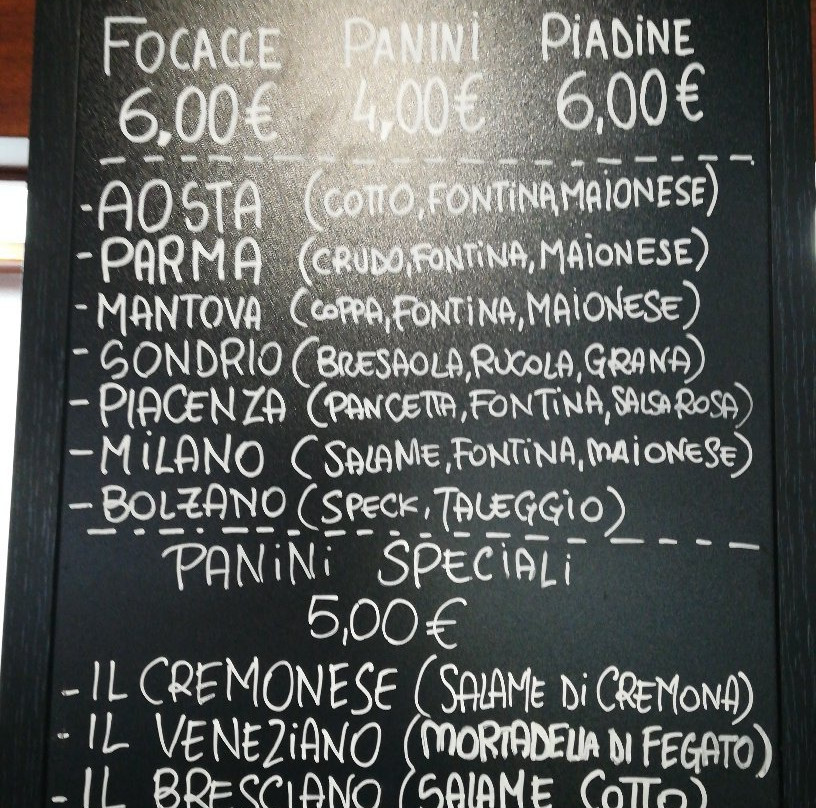 FOCACCE PANINI PIADINE
6,00€ 4,00€ 6,00€
-AOSTA (COTTO,FONTINA,MAIONESE)
-PARMA (CRUDO,FONTINA,MAIONESE)
-MANTOVA (COPPA,FONTINA,MAIONESE)
-SONDRIO (BRESAOLA,RUCOLA,GRANA)
-PIACENZA (PANCETTA,FONTINA,SALSA ROSA)
-MILANO (SALAME,FONTINA,MAIONESE)
-BOLZANO (SPECK, TALEGGIO)
PANINI SPECIALI
5,00€
-IL CREMONESE (SALAME DI CREMONA)
-IL VENEZIANO (MORTADELLA DI FEGATO)
-IL BRESCIANO (SALAME COTTO)